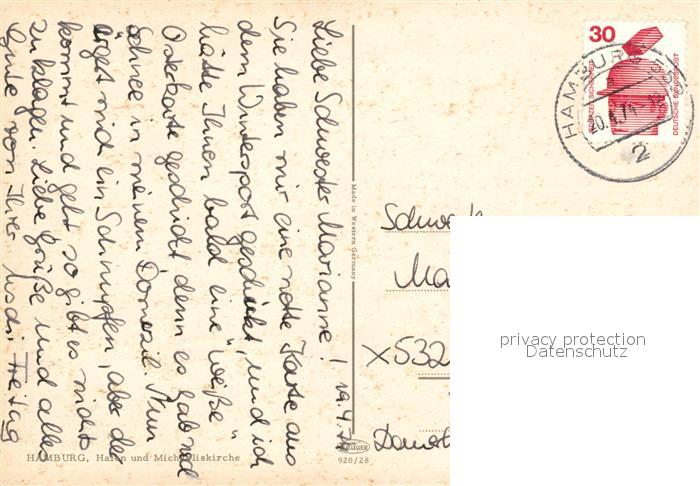 Liebe Schwester Marianne! 19.4.
Sie haben mir eine nette Karte aus
dem Wintersport geschickt, und ich
hätte Ihnen bald eine "weiße"
Osterkarte geschickt denn es gab viel
Schnee in meinem Domizil. Nun
ärgert mich ein Schnupfen, aber der
kommt und geht, so gibt es nichts
zu klagen. Liebe Grüße und alles
Gute von Ihrer Freitag
Made in Western Germany
KRÜGER
920/28
HAMBURG, Hafen und Michaeliskirche
30
DEUTSCHE BUNDESPOST
HAMBURG
20.4.74
2
Schwest
Ma
X532
privacy protection
Datenschutz